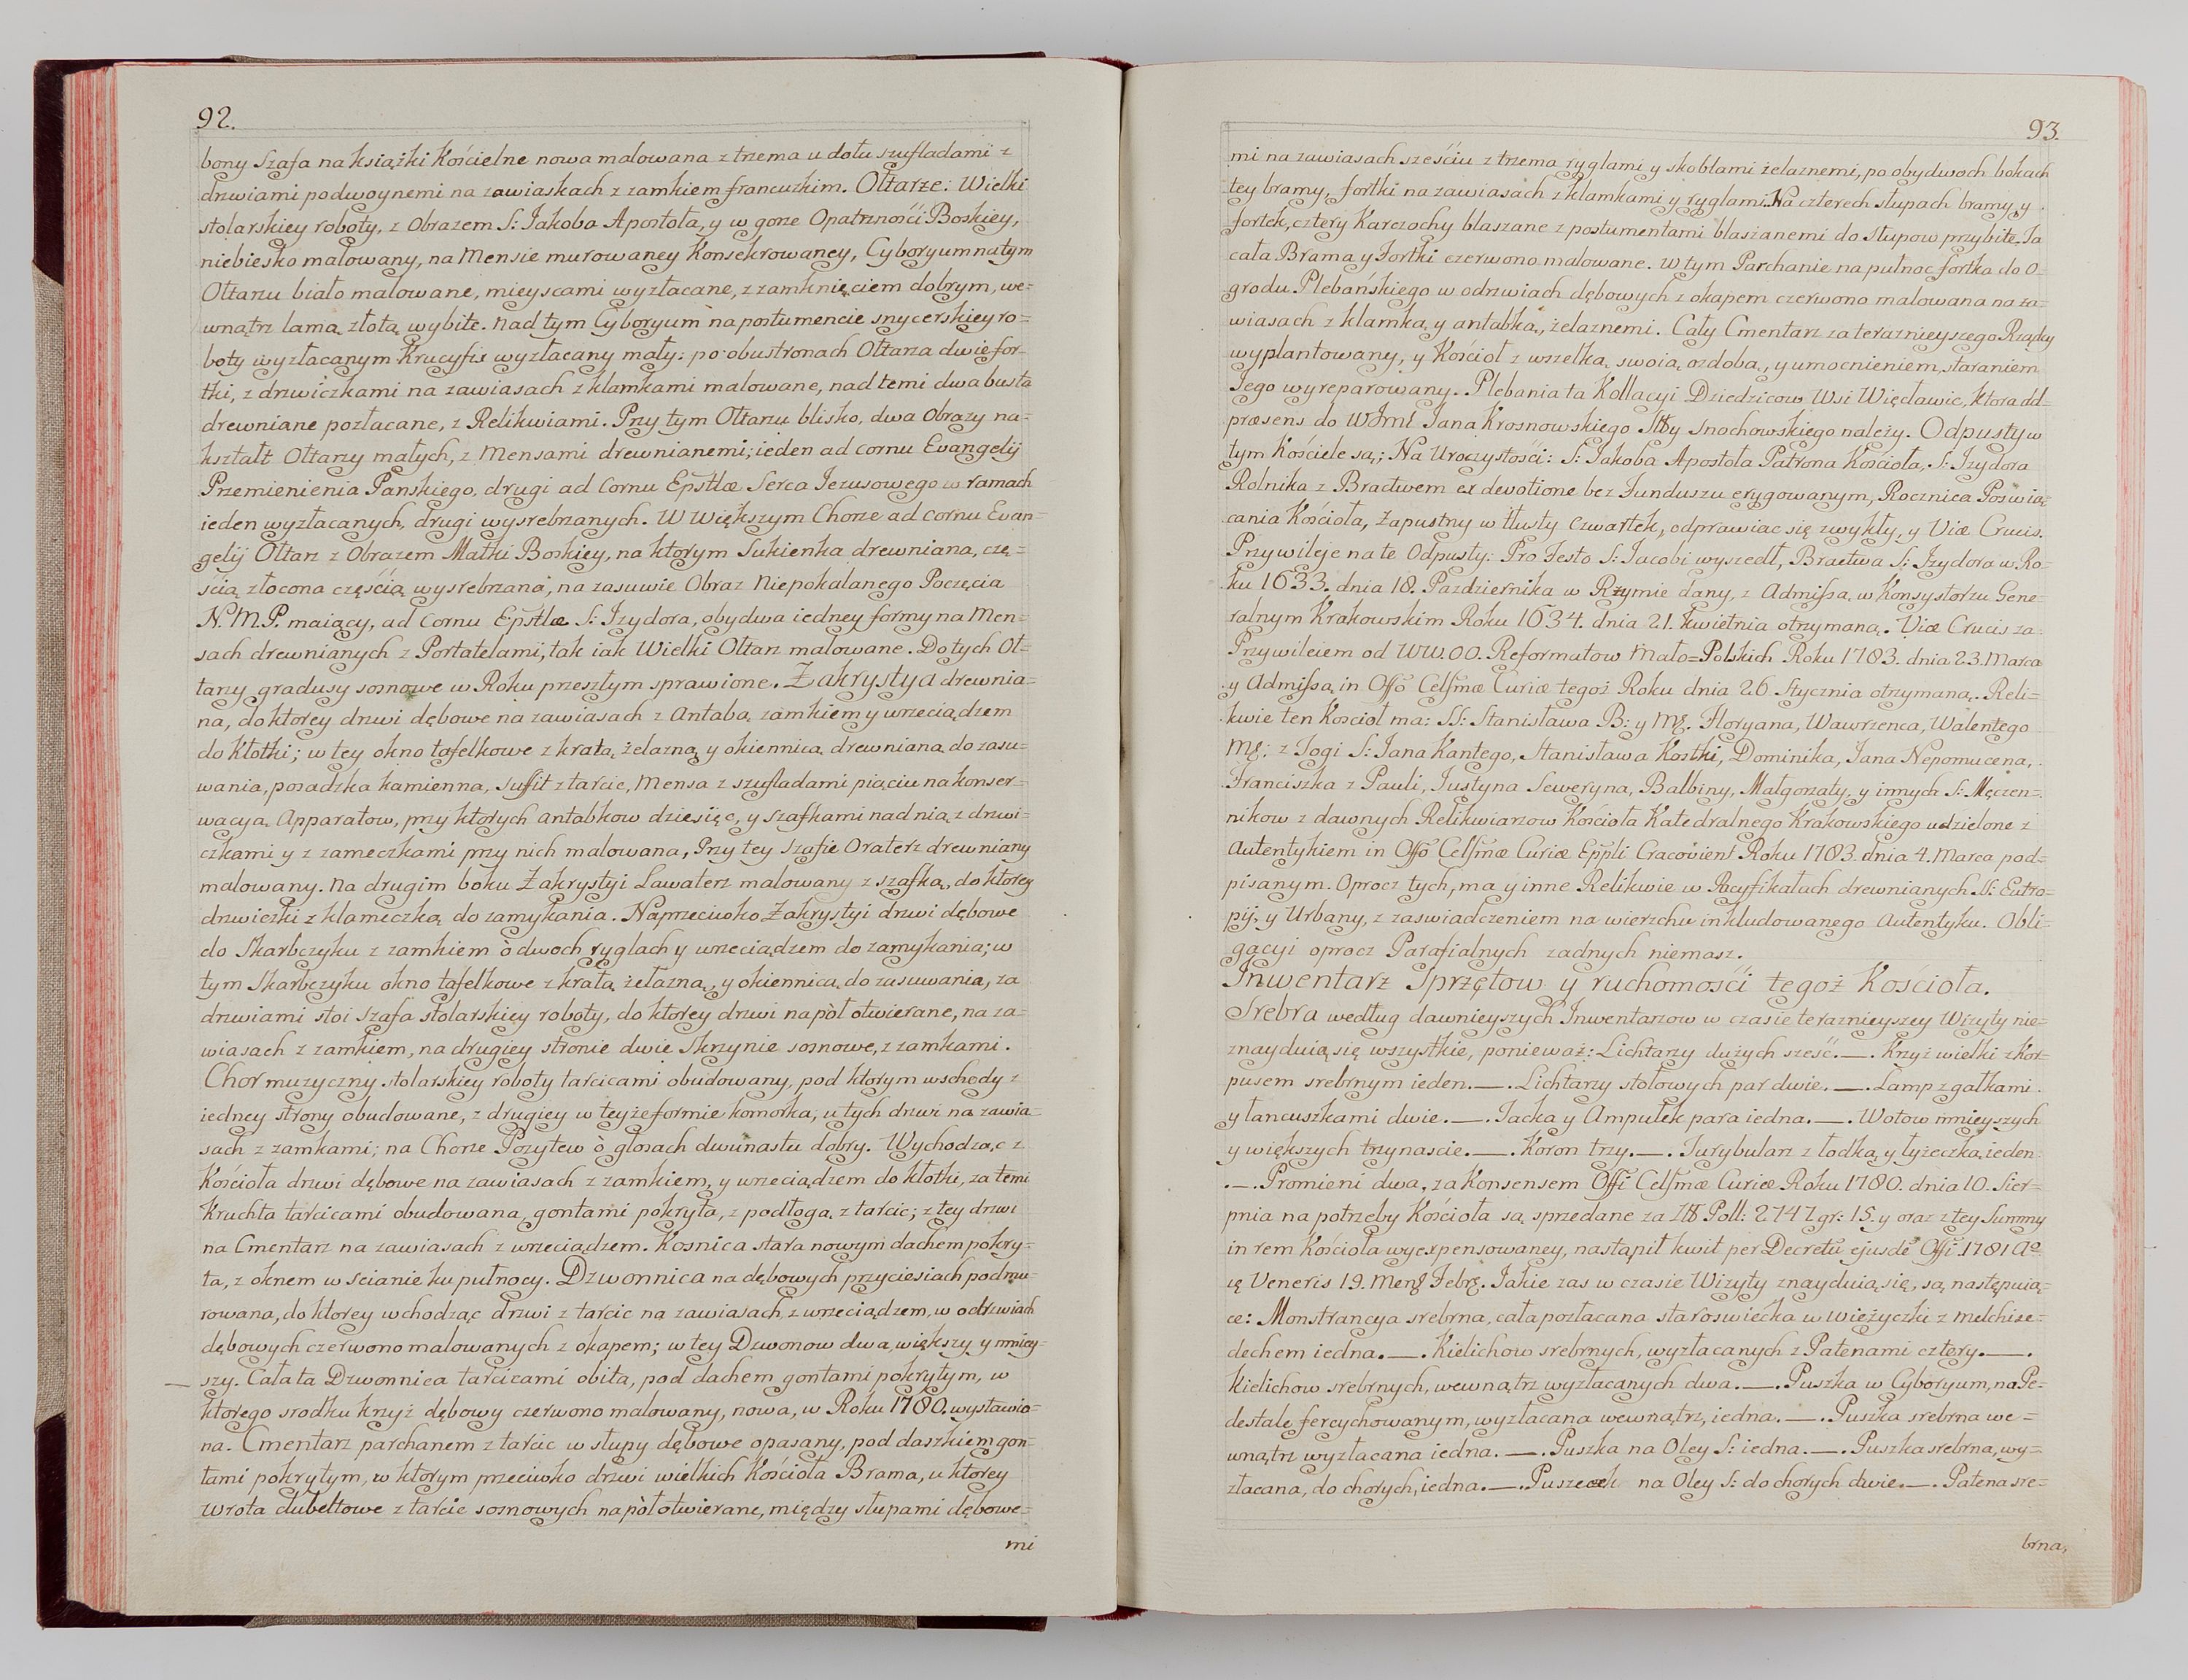 92.
bony Szafa na książki Kościelne nowa malowana z trzema u dołu szufladami z
drzwiami podwoynemi na zawiaskach z zamkiem francuzkim. Ołtarze: Wielki
stolarskiey roboty, z Obrazem S: Jakoba Apostoła, y w gorze Opatrzności Boskiey,
niebiesko malowany, na Mensie murowaney Konsekrowaney, Cyboryum na tym
Ołtarzu biało malowane, mieyscami wyzłacane, z zamknięciem dobrym, we=
wnątrz lamą złotą wybite. nad tym Cyboryum na postumencie snycerskiey ro=
boty wyzłacanym Krucyfix wyzłacany mały: po obu stronach Ołtarza dwie for=
tki, z drzwiczkami na zawiasach z klamkami malowane, nad temi dwa busta
drewniane pozłacane, z Relikwiami. Przy tym Ołtarzu blisko, dwa Obrazy na=
kształt Ołtarzy małych, z Mensami drewnianemi; ieden ad cornu Evangelij
Przemienienia Panskiego, drugi ad Cornu Epstlæ Serca Jezusowego w ramach
ieden wyzłacanych, drugi wysrebrzanych. W Większym Chorze ad cornu Evan=
gelij Ołtarz z Obrazem Matki Boskiey, na ktorym Sukienka drewniana, czę=
ścią złocona częścią wysrebrzana, na zasuwie Obraz Niepokalanego Poczęcia
N. M. P. maiący, ad Cornu Epstlæ S: Izydora, obydwa iedney formy na Men=
sach drewnianych z Portatelami, tak iak Wielki Ołtarz malowane. Do tych Oł=
tarzy gradusy sosnowe w Roku przeszłym sprawione. Zakrystya drewnia=
na, do ktorey drzwi dębowe na zawiasach z Antabą zamkiem y wrzeciądzem
do Kłotki; w tey okno tafelkowe z kratą żelazną y okiennicą drewnianą do zasu=
wania, posadzka kamienna, suffit z tarcic, Mensa z szufladami piąciu na konser=
wacyą Apparatow, przy ktorych antabkow dziesięć, y szafkami nad nią z drzwi=
czkami y z zameczkami przy nich malowana, Przy tey szafie Oraterz drewniany
malowany. Na drugim boku Zakrystyi Lawaterz malowany z szafką, do ktorey
drzwiczki z klameczką do zamykania. Naprzeciwko Zakrystyi drzwi dębowe
do Skarbczyku z zamkiem ò dwoch ryglach y wrzeciądzem do zamykania; w
tym Skarbczyku okno tafelkowe z kratą żelazną, y okiennicą do zasuwania, za
drzwiami stoi Szafa stolarskiey roboty, do ktorey drzwi na pòł otwierane, na za=
wiasach z zamkiem, na drugiey stronie dwie Skrzynie sosnowe, z zamkami.
Chor muzyczny stolarskiey roboty tarcicami obudowany, pod ktorym wschody z
iedney strony obudowane, z drugiey w teyże formie komorka, u tych drzwi na zawia=
sach z zamkami; na Chorze Pozytew ò głosach dwunastu dobry. Wychodząc z
Kościoła drzwi dębowe na zawiasach z zamkiem, y wrzeciądzem do kłotki, za temi
Kruchta tarcicami obudowana, gontami pokryta, z podłogą z tarcic; z tey drzwi
na Cmentarz na zawiasach z wrzeciądzem. Kosnica stara nowym dachem pokry=
ta, z oknem w scianie ku pułnocy. Dzwonnica na dębowych przyciesiach podmu=
rowana, do ktorey wchodząc drzwi z tarcic na zawiasach, z wrzeciądzem, w odrzwiach
dębowych czerwono malowanych z okapem; w tey Dzwonow dwa, większy y mniey=
szy. Cała ta Dzwonnica tarcicami obita, pod dachem gontami pokrytym, w
ktorego srodku krzyż dębowy czerwono malowany, nowa, w Roku 1780. wystawio=
na. Cmentarz parchanem z tarcic w słupy dębowe opasany, pod daszkiem gon=
tami pokrytym, w ktorym przeciwko drzwi wielkich Kościoła Brama, u ktorey
wrota dubeltowe z tarcic sosnowych na pòł otwierane, między słupami dębowe=
mi
93.
mi na zawiasach sześciu z trzema ryglami y skoblami żelaznemi, po obydwoch bokach
tey bramy, fortki na zawiasach z klamkami y ryglami. Na czterech słupach bramy y
fortek, cztery Karczochy blaszane z postumentami blaszanemi do słupow przybite. Ta
cała Brama y Fortki czerwono malowane. W tym Parchanie na pułnoc fortka do O=
grodu Plebańskiego w odrzwiach dębowych z okapem czerwono malowana na za=
wiasach z klamką y antabką, żelaznemi. Cały Cmentarz za teraznieyszego Rządcy
wyplantowany, y Kościoł z wszelką swoią ozdobą, y umocnieniem, staraniem
Jego wyreparowany. Plebania ta Kollacyi Dziedzicow Wsi Więcławic, ktora ad=
præsens do WJmć Jana Krosnowskiego Stty Snochowskiego należy. Odpusty w
tym Kościele są; Na Uroczystości: S: Jakoba Apostoła Patrona Kościoła, S: Izydora
Rolnika z Bractwem ex devotione bez Funduszu erygowanym, Rocznica Poswią=
cania Kościoła, Zapustny w tłusty Czwartek, odprawiac się zwykły, y Viæ Crucis.
Przywileje na te Odpusty: Pro Festo S: Jacobi wyszedł, Bractwa S: Izydora w Ro=
ku 1633. dnia 18. Pazdziernika w Rzymie dany, z Admissą w Konsystorzu Gene=
ralnym Krakowskim Roku 1634. dnia 21. kwietnia otrzymaną. Viæ Crucis za=
Przywileiem od WW. OO. Reformatow Mało=Polskich Roku 1783. dnia 23. Marca
y Admissą in Offo Celsmæ Curiæ tegoż Roku dnia 26 Stycznia otrzymaną. Reli=
kwie ten Koscioł ma: SS: Stanisława B: y M. Floryana, Wawrzenca, Walentego
M: z Togi S: Jana Kantego, Stanisława Kostki, Dominika, Jana Nepomucena,
Franciszka z Pauli, Justyna Seweryna, Balbiny, Małgorzaty, y innych S: Męczen=
nikow z dawnych Relikwiarzow Kościoła Katedralnego Krakowskiego udzielone z
Autentykiem in Offo Celsmæ Curiæ Eppli Cracovien. Roku 1783. dnia 4. Marca pod=
pisanym. Oprocz tych, ma y inne Relikwie w Pacyfikałach drewnianych SS: Eutro=
pij, y Urbany, z zaswiadczeniem na wierzchu inkludowanego Autentyku. Obli=
gacyi oprocz Parafialnych zadnych niemasz.
Inwentarz Sprzętow y ruchomości tegoż Kościoła.
Srebra według dawnieyszych Inwentarzow w czasie teraznieyszey Wizyty nie=
znayduią się wszystkie, ponieważ: Lichtarzy dużych sześć. —. Krzyż wielki z Kor=
pusem srebrnym ieden. —. Lichtarzy stołowych par dwie. —. Lamp z gałkami
y łancuszkami dwie. —. Tacka y Ampułek para iedna. —. Wotow mnieyszych
y większych trzynascie. —. Koron trzy. —. Turybularz z łodką, y łyżeczką ieden
. —. Promieni dwa, za Konsensem Offi Celsmæ Curiæ Roku 1780. dnia 10. Sier=
pnia na potrzeby Kościoła są sprzedane za Poll: 2747 gr: 15. y oraz z tey Summy
in rem Kościoła wyexpensowaney, nastąpił kwit per Decretũ ejusdẽ Offi 1781 Ao
Veneris 19. Mens Febr. Jakie zas w czasie Wizyty znayduią się, są następuią=
ce: Monstrancya srebrna, cała pozłacana staroswiecka w wieżyczki z melchise=
dechem iedna. —. Kielichow srebrnych, wyzłacanych z Patenami cztery. —.
kielichow srebrnych, wewnątrz wyzłacanych dwa. —. Puszka w Cyboryum, na Pe=
destale fercychowanym, wyzłacana wewnątrz, iedna. —. Puszka srebrna we=
wnątrz wyzłacana iedna. —. Puszka na Oley S: iedna. —. Puszka srebrna, wy=
złacana, do chorych, iedna. —. Puszeczek na Oley S: do chorych dwie. —. Patena sre=
brna,